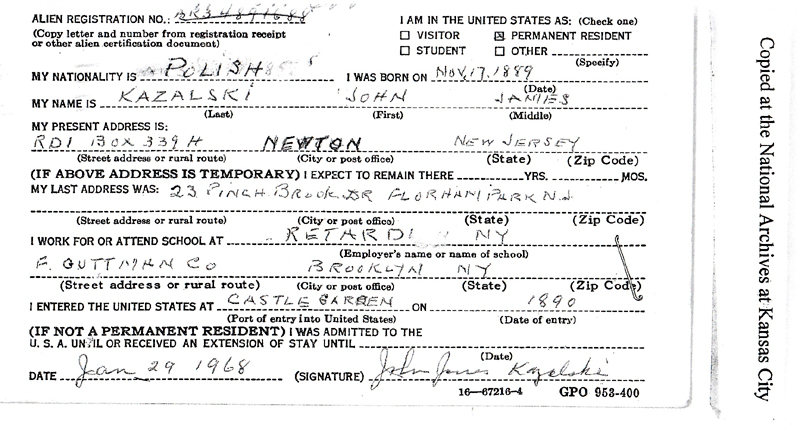 ALIEN REGISTRATION NO.: I AM IN THE UNITED STATES AS: (Check one)
(Copy letter and number from registration receipt ☐ VISITOR ☒ PERMANENT RESIDENT
or other alien certification document) ☐ STUDENT ☐ OTHER
(Specify)
MY NATIONALITY IS POLISH I WAS BORN ON Nov. 17. 1889
(Date)
MY NAME IS KAZALSKI JOHN JAMES
(Last) (First) (Middle)
MY PRESENT ADDRESS IS:
RD1 BOX 339 H NEWTON NEW JERSEY
(Street address or rural route) (City or post office) (State) (Zip Code)
(IF ABOVE ADDRESS IS TEMPORARY) I EXPECT TO REMAIN THERE YRS. MOS.
MY LAST ADDRESS WAS: 23 PINCH BROOK DR FLORHAM PARK NJ
(Street address or rural route) (City or post office) (State) (Zip Code)
I WORK FOR OR ATTEND SCHOOL AT NY
(Employer's name or name of school)
F. GUTTMAN CO BROOKLYN NY
(Street address or rural route) (City or post office) (State) (Zip Code)
I ENTERED THE UNITED STATES AT CASTLE GARDEN ON 1890
(Port of entry into United States) (Date of entry)
(IF NOT A PERMANENT RESIDENT) I WAS ADMITTED TO THE
U. S. A. UNTIL OR RECEIVED AN EXTENSION OF STAY UNTIL
(Date)
DATE Jan 29 1968 (SIGNATURE) John James Kazalski
16—67216-4 GPO 953-400
Copied at the National Archives at Kansas City